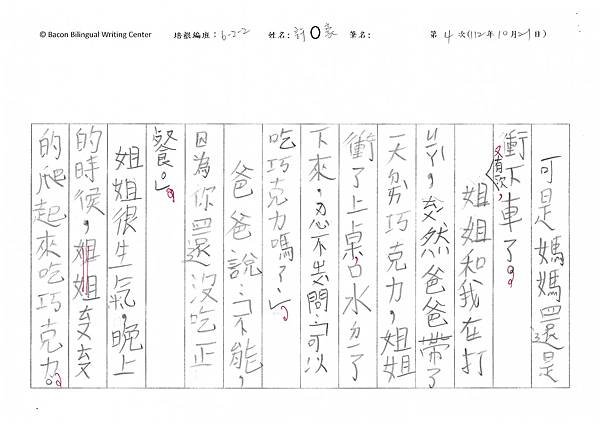 © Bacon Bilingual Writing Center 培根編班：6-2-2 姓名： 筆名： 第4次(112年10月21日)
可是媽媽還是
衝下車了。
姐姐和我在打
，突然爸爸帶了
巧克力，姐姐
衝了上 口水 了
下來，忍不 問：「可以
吃巧克力嗎？」
爸爸說：「不能，
因為你還沒吃正
餐。」
姐姐很生氣，晚上
的時候，姐姐
的爬起來吃巧克力。